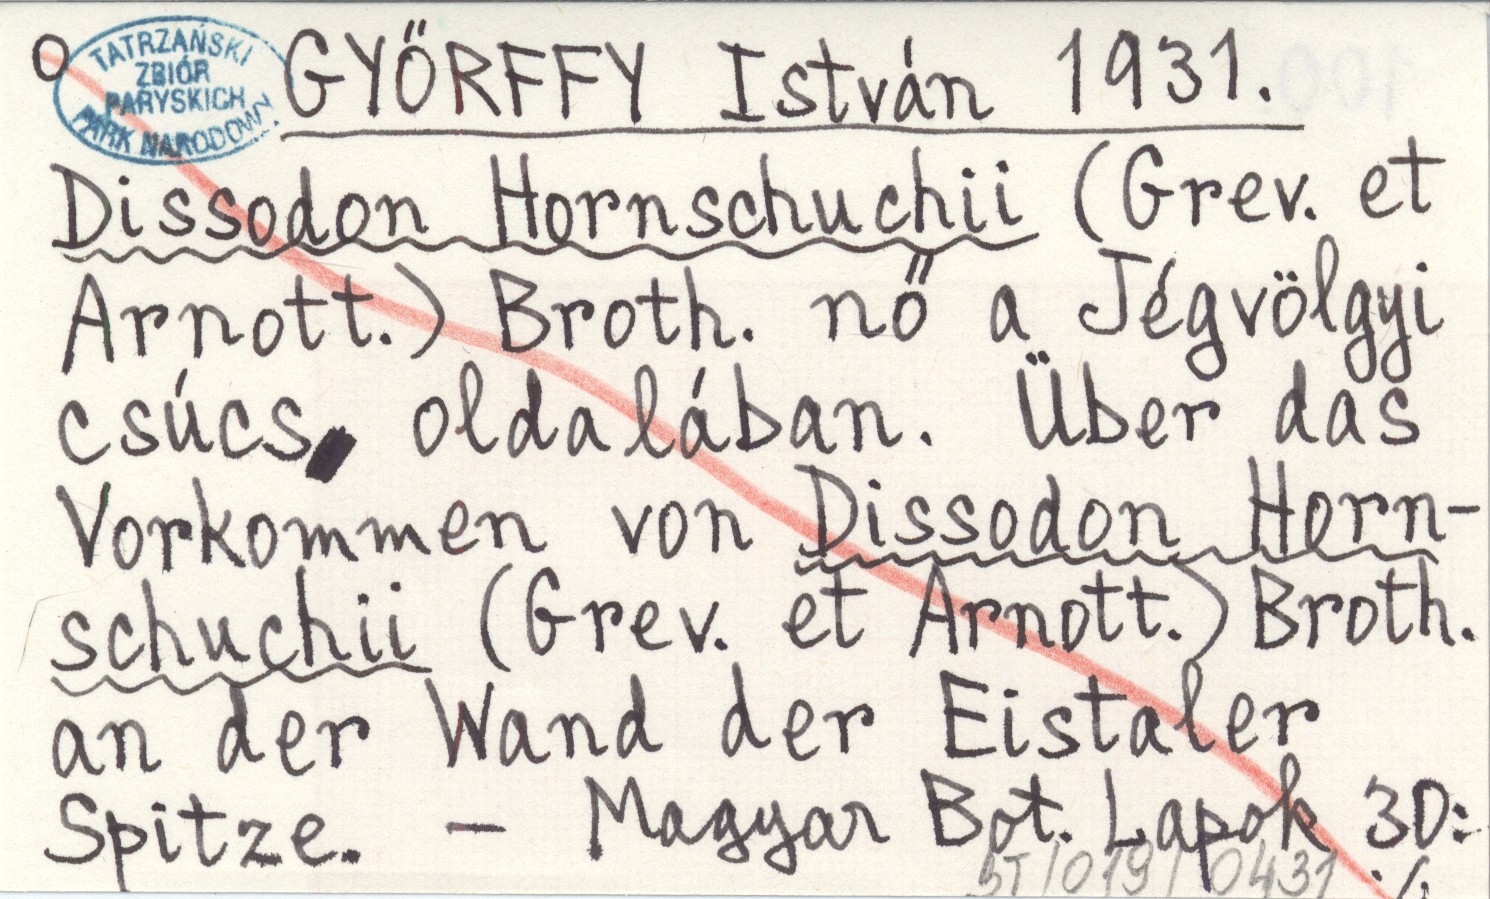 TATRZAŃSKI
ZBIÓR
PARYSKICH
PARK NARODOWY
GYŐRFFY István 1931.
Dissodon Hornschuchii (Grev. et
Arnott.) Broth. nő a Jégvölgyi
csúcs oldalában. Über das
Vorkommen von Dissodon Horn-
schuchii (Grev. et Arnott.) Broth.
an der Wand der Eistaler
Spitze. – Magyar Bot. Lapok 30:
ST/019/0431 ./.